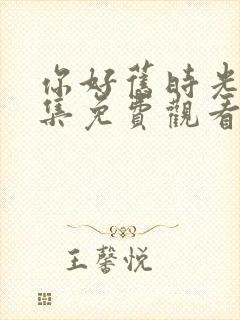 你好舊時光
集免費觀看
王馨悅